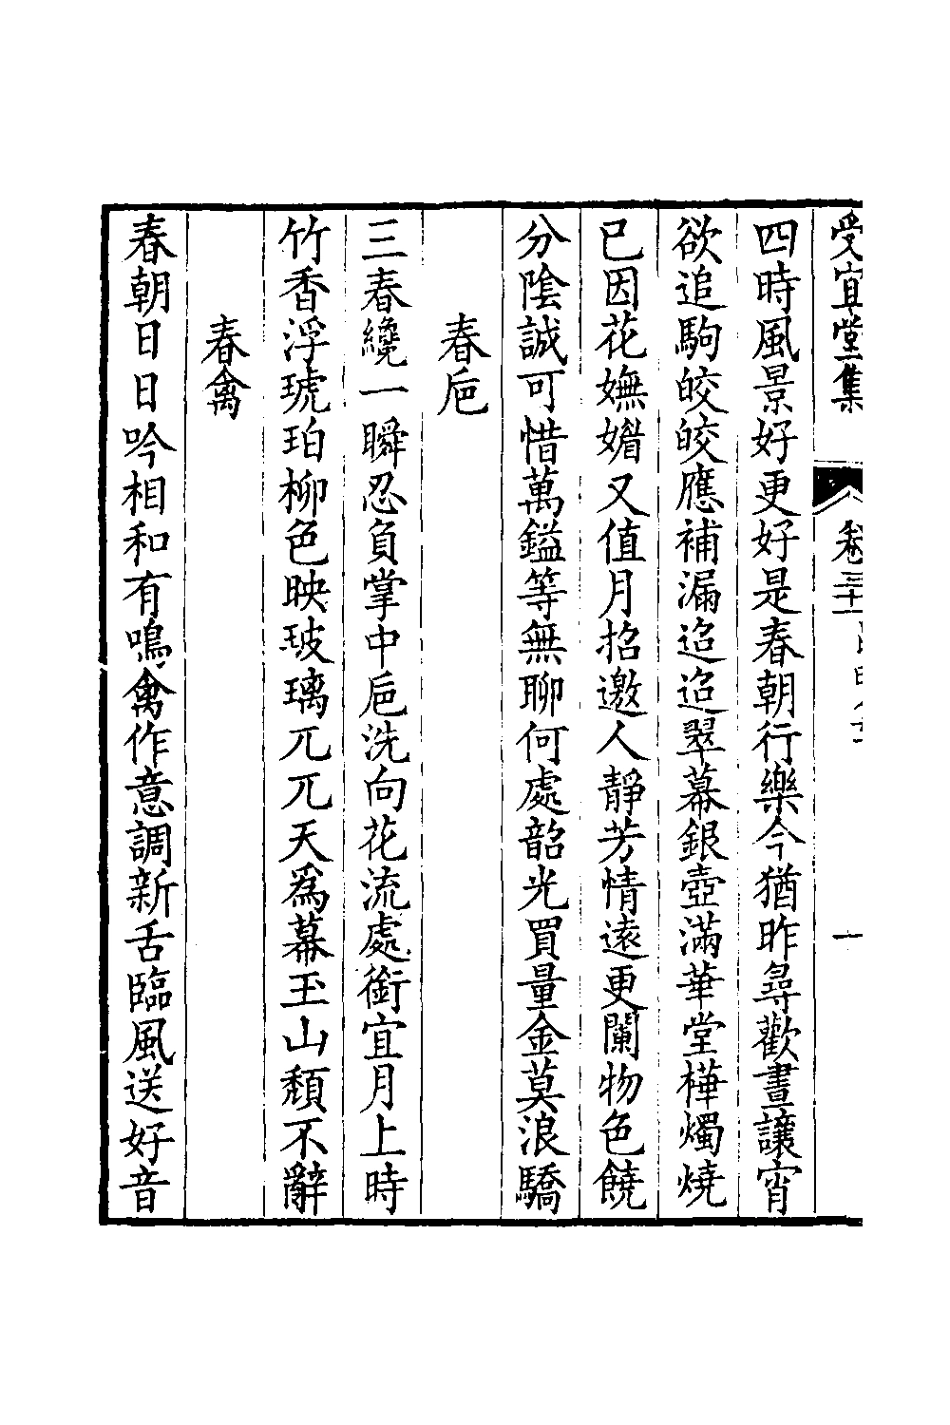 受宜堂集
卷三十
一
四時風景好更好是春朝行樂今猶昨尋歡晝讓宵
欲追駒皎皎應補漏迢迢翠幕銀壺滿華堂樺燭燒
已因花嫵媚又值月招邀人靜芳情遠更闌物色饒
分陰誠可惜萬鎰等無聊何處韶光買量金莫浪驕
春巵
三春纔一瞬忍負掌中巵洗向花流處銜宜月上時
竹香浮琥珀柳色映玻璃兀兀天為幕玉山頹不辭
春禽
春朝日日吟相和有鳴禽作意調新舌臨風送好音